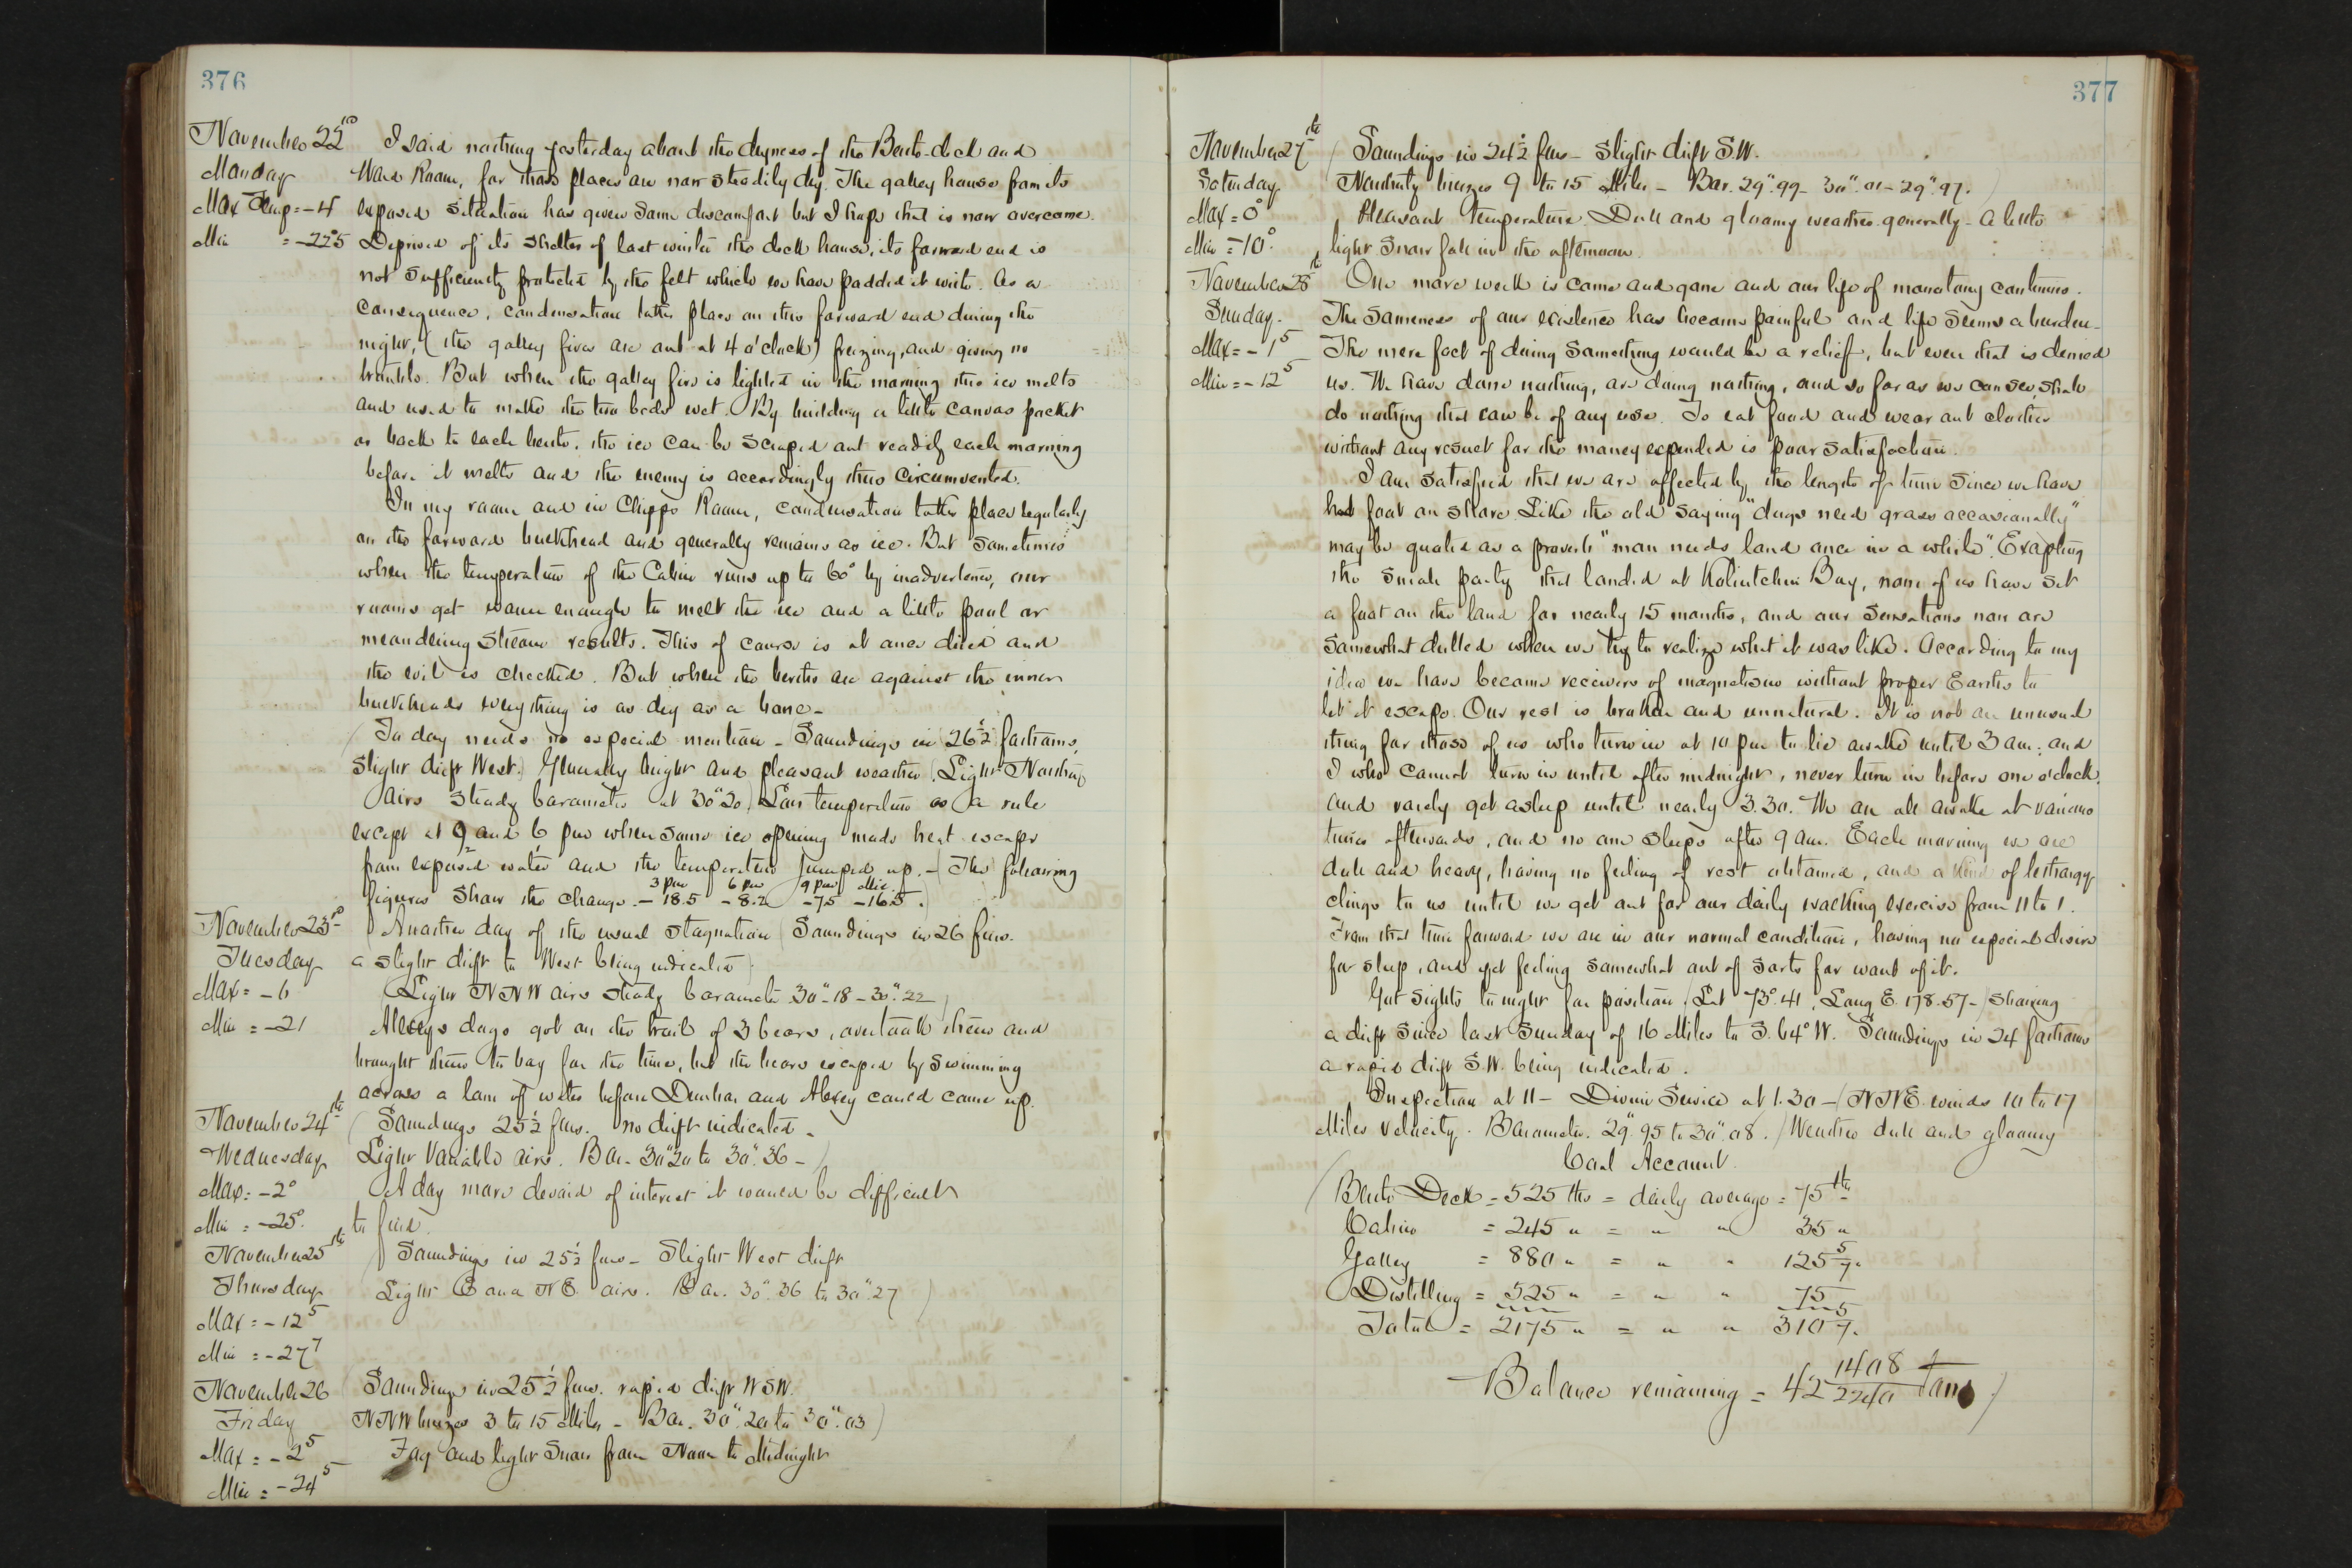 376
November 22nd
Monday
Max Temp = -4
Min = -22°5
I said nothing yesterday about the dryness of the Berth-deck and
Ward Room, for those places are now steadily dry. The galley house from its
exposed situation has given some discomfort but I hope that is now overcome.
Deprived of its shelter of last winter the deck house, its forward end is
not sufficiently protected by the felt which we have padded it with. As a
consequence, condensation takes place on this forward end during the
night, (the galley fires are out at 4 o'clock) freezing, and giving no
trouble. But when the galley fire is lighted in the morning this ice melts
and used to make the two beds wet. By building a little canvas pocket
or back to each berth, the ice can be scraped out readily each morning
before it melts and the enemy is accordingly thus circumvented.
In my room and in Chipp's Room, condensation takes place regularly
on the forward bulkhead and generally remains as ice. But sometimes
when the temperature of the Cabin runs up to 60° by inadvertence, our
rooms get warm enough to melt the ice and a little pool or
meandering stream results. This of course is at once dried and
the evil is checked. But when the berths are against the inner
bulkheads everything is as dry as a bone -
(To day needs no especial mention - Soundings in 26½ fathoms,
slight drift West.) Generally bright and pleasant weather (Light Northerly
airs steady barometer at 30"20) Low temperature as a rule
except at 9 and 6 pm when some ice opening made heat escape
from exposed water and the temperature jumped up. - (The following
3 pm 6 pm 9 pm Mid.
figures show the change - 18.5 - 8.2 - 7.5 - 16.5.)
November 23rd
Tuesday
Max = -6
Min = -21
Another day of the usual stagnation (Soundings in 26 fms.
a slight drift to West being indicated)
(Light NNW airs steady barometer 30".18 - 30".22)
Alexey's dogs got on the trail of 3 bears, overtook them and
brought them to bay for the time, but the bears escaped by swimming
across a lane of water before Dunbar and Alexey could come up.
November 24th
Wednesday
Max = -2°
Min = -25°.
(Soundings 25½ fms. no drift indicated -
Light Variable airs. Bar - 30"20 to 30".36 -)
A day more devoid of interest it would be difficult
to find.
November 25th
Thursday
Max = -12 5
Min = -27 7
(Soundings in 25½ fms - Slight West drift
Light E and NE airs. Bar. 30".36 to 30".27)
November 26
Friday
Max = -2 5
Min = -24 5
Soundings in 25½ fms. rapid drift WSW.
NNW breezes 3 to 15 Miles - Bar. 30".20 to 30".03)
Fog and light Snow from Noon to Midnight
377
November 27th
Saturday
Max = 0°
Min = -10°.
(Soundings in 24½ fms - Slight drift S.W.
Northerly breezes 9 to 15 Miles - Bar. 29".99 - 30".01 - 29".97.)
Pleasant temperature. Dull and gloomy weather generally - a little
light snow fall in the afternoon.
November 28th
Sunday.
Max = -1 5
Min = -12 5
One more week is come and gone and our life of monotony continues.
The sameness of our existence has become painful and life seems a burden -
The mere fact of doing something would be a relief, but even that is denied
us. We have done nothing, are doing nothing, and so far as we can see, shall
do nothing that can be of any use. To eat food and wear out clothes
without any result for the money expended is poor satisfaction.
I am satisfied that we are affected by the length of time since we have
had foot on shore. Like the old saying "dogs need grass occasionally"
may be quoted as a proverb "man needs land once in a while". Excepting
the small party that landed at Koliutchin Bay, none of us have set
a foot on the land for nearly 15 months, and our sensations now are
somewhat dulled when we try to realize what it was like. According to my
idea we have become receivers of magnetism without proper Earths to
let it escape. Our rest is broken and unnatural. It is not an unusual
thing for those of us who turn in at 10 pm to lie awake until 3 am: and
I who cannot turn in until after midnight, never turn in before one o'clock
and rarely get asleep until nearly 3.30. We are all awake at various
times afterwards, and no one sleeps after 9 am. Each morning we are
dull and heavy, having no feeling of rest obtained, and a kind of lethargy
clings to us until we get out for our daily walking exercise from 11 to 1.
From that time forward we are in our normal condition, having no especial desire
for sleep, and yet feeling somewhat out of sorts for want of it.
Got sights to night for position (Lat 73°.41, Long E. 178.57 -) showing
a drift since last Sunday of 16 Miles to S.64°W. Soundings in 24 fathoms
a rapid drift S.W. being indicated.
Inspection at 11 - Divine Service at 1.30 - (NNE. winds 10 to 17
Miles velocity. Barometer. 29".95 to 30".08.) Weather dull and gloomy
Coal Account.
(Berth Deck = 525 lbs = daily average = 75 lbs
Cabin = 245 " = " " 35 "
Galley = 880 " = " " 125 5/7 "
Distilling = 525 " = " " 75
Total = 2175 " = " " 310 5/7 "
Balance remaining = 42 1408/2240 Tons)